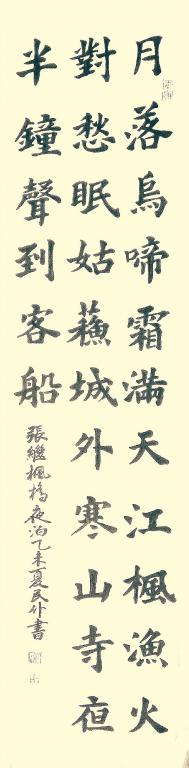 月落烏啼霜滿天江楓漁火
對愁眠姑蘓城外寒山寺亱
半鐘聲到客船
張繼楓橋夜泊乙未夏民書